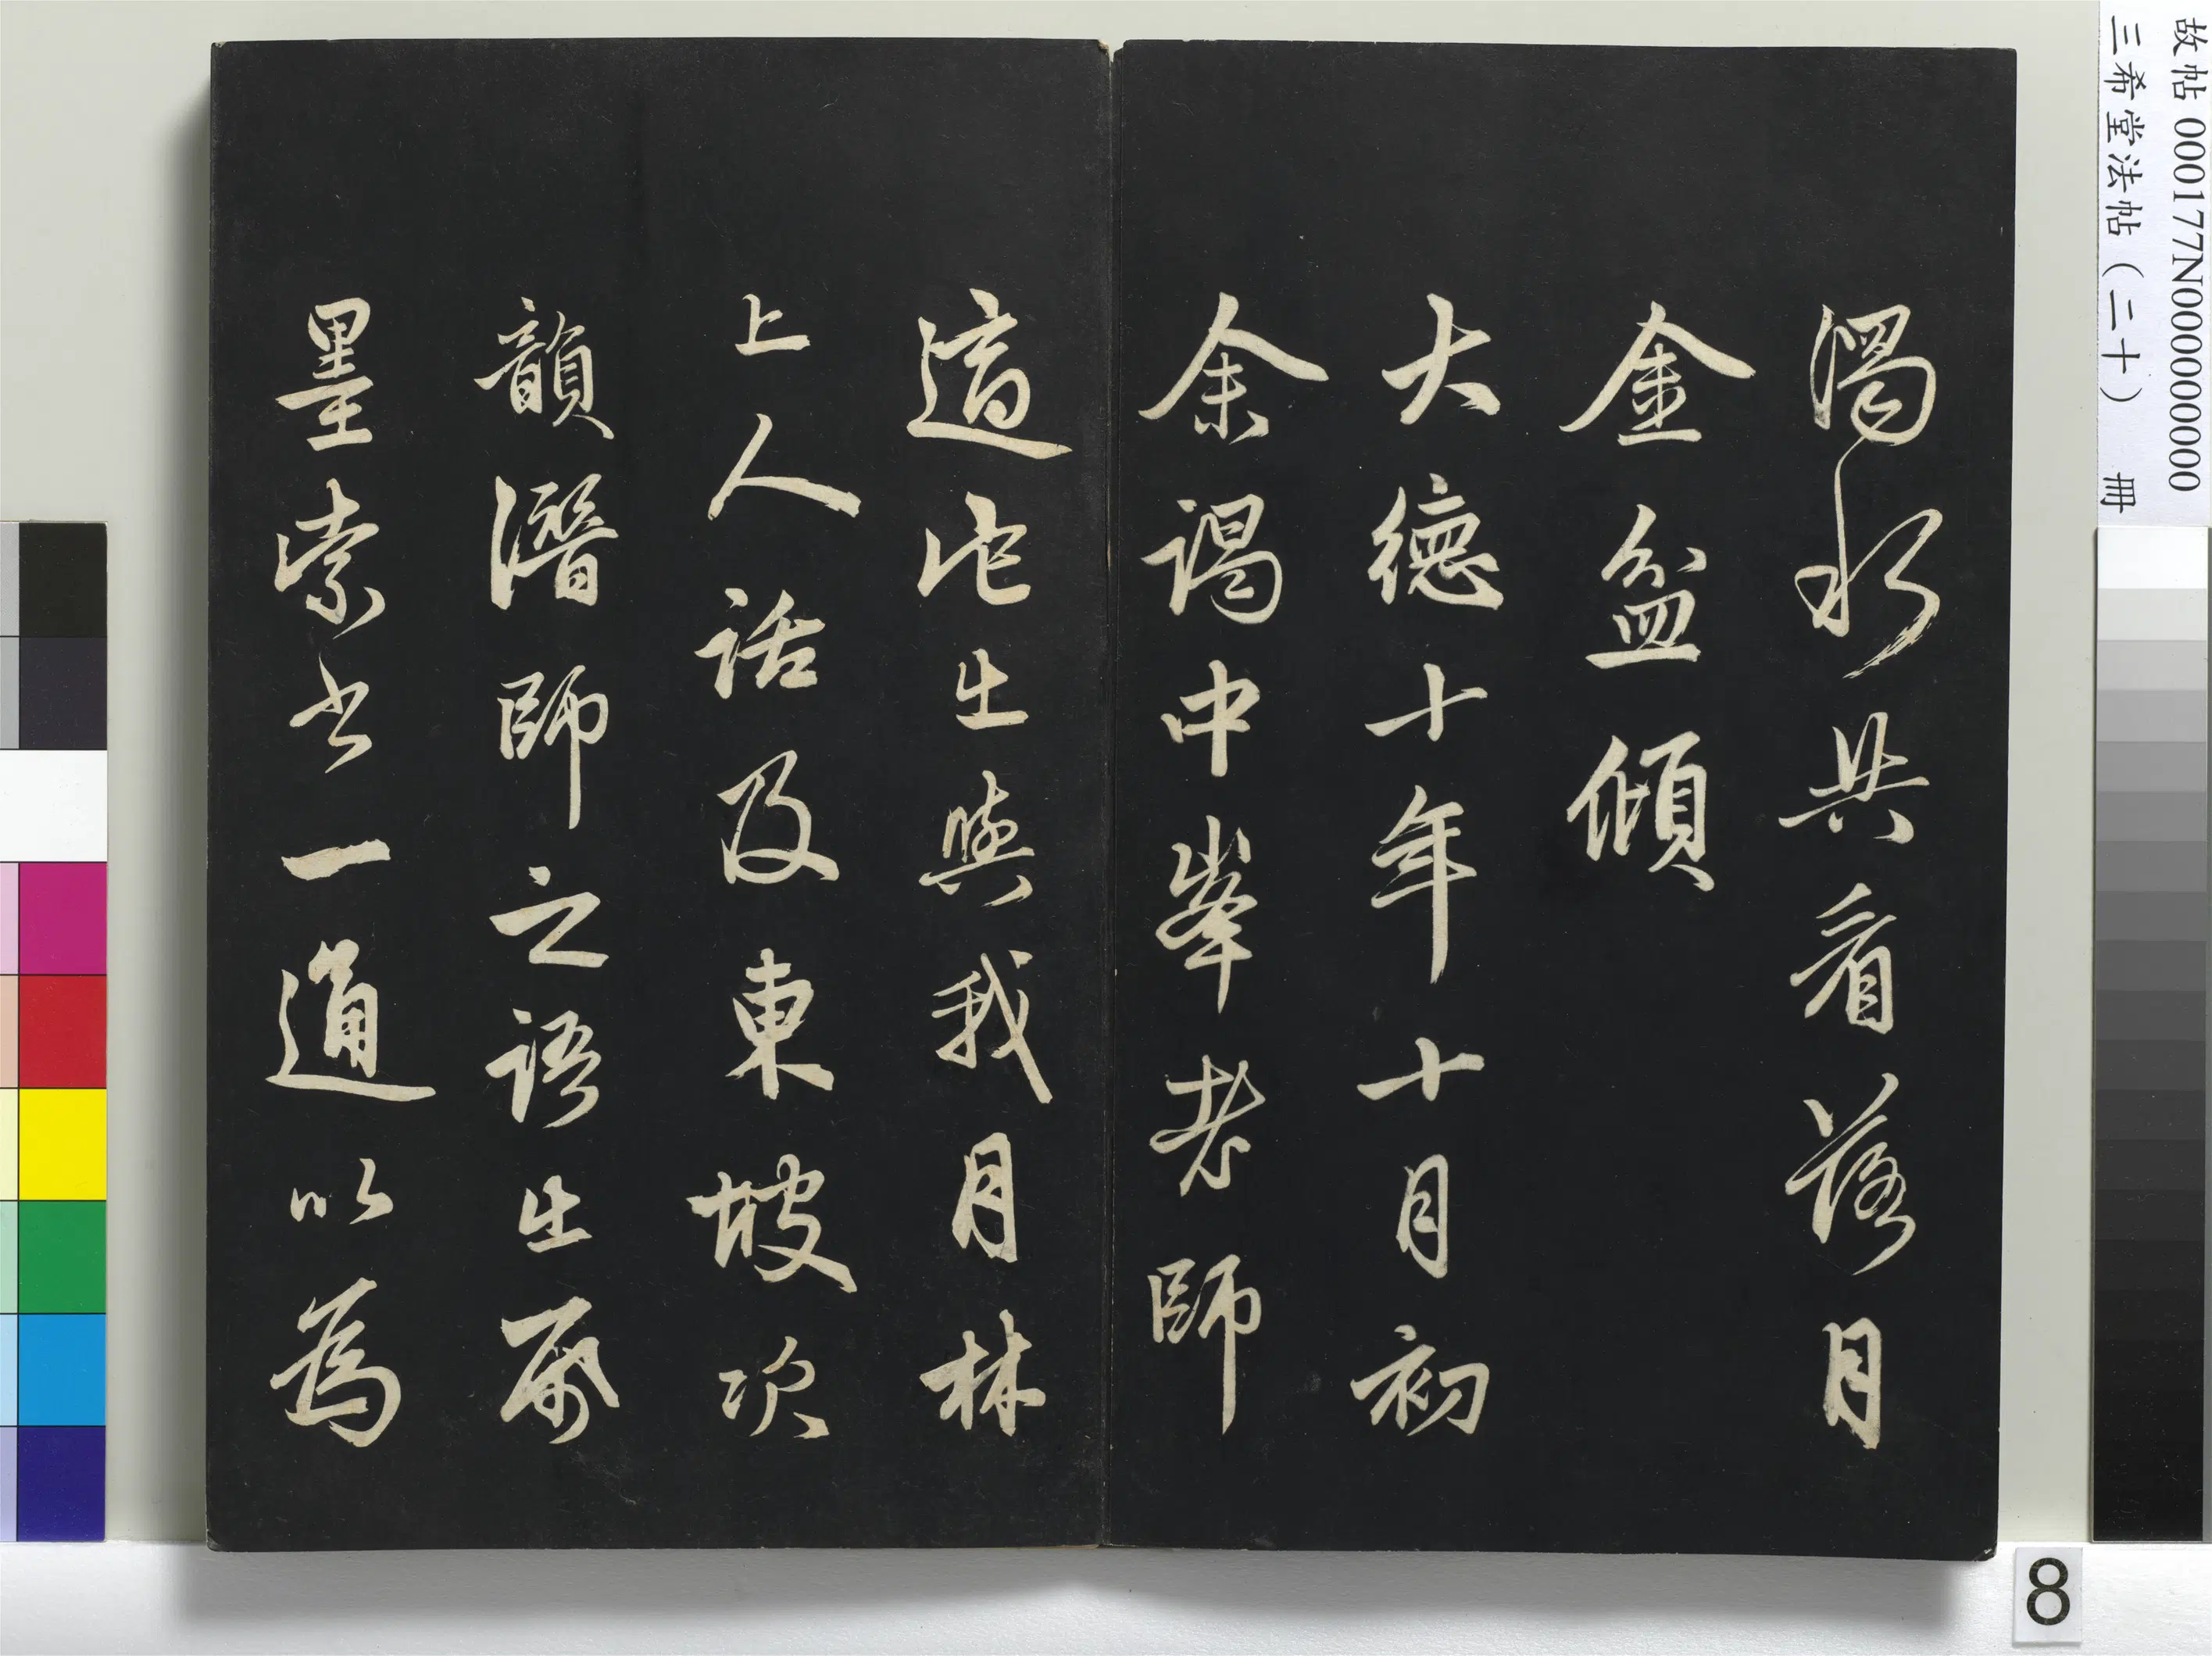 濁水共看落月
金盆傾
大德十年十月初
余謁中峯老師
適生與我月林
上人話及東坡次
韻潛師之語生齎
墨索書一通以為
故帖 000177N000000000
三希堂法帖（二十） 冊
8